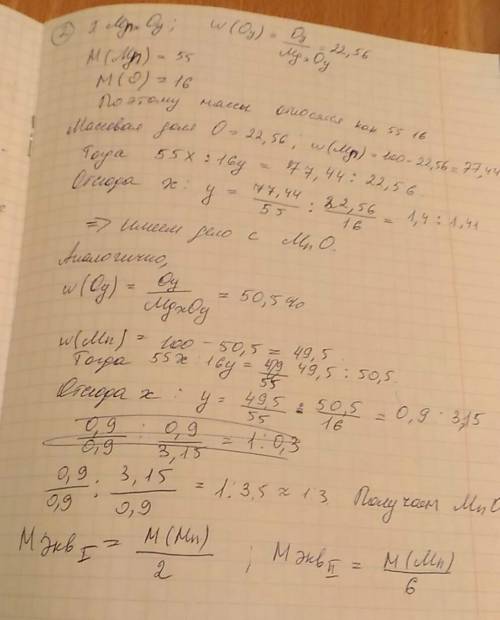 ② 1 MnxOy; w(Oy) = Oy/MgxOy = 22,56
M(Mn) = 55
M(O) = 16
Поэтому массы относятся как 55 16
Массовая доля O = 22,56; w(Mn) = 100 - 22,56 = 77,44
Тогда 55x : 16y = 77,44 : 22,56
Отсюда x : y = 77,44/55 : 22,56/16 = 1,4 : 1,41
=> имеем дело с MnO.
Аналогично,
w(Oy) = Oy/MgxOy = 50,5%
w(Mn) = 100 - 50,5 = 49,5
Тогда 55x : 16y = 49/55 49,5 : 50,5
Отсюда x : y = 49,5/55 : 50,5/16 = 0,9 : 3,15
0,9/0,9 : 0,9/3,15 = 1 : 0,3
0,9/0,9 : 3,15/0,9 = 1 : 3,5 ≈ 1:3 Получаем MnO
M экв I = M(Mn)/2 ; M экв II = M(Mn)/6